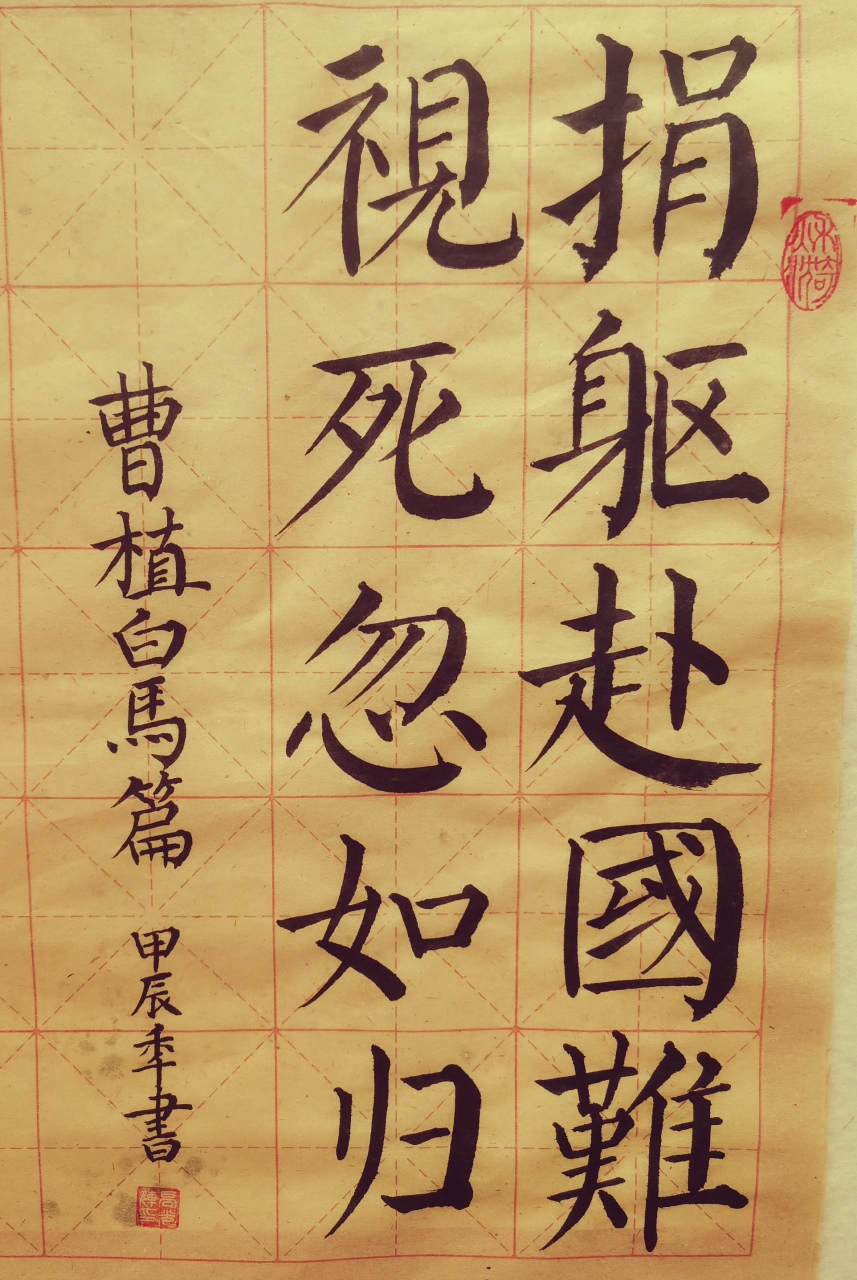 捐躯赴國難
視死忽如归
曹植白馬篇 甲辰季書